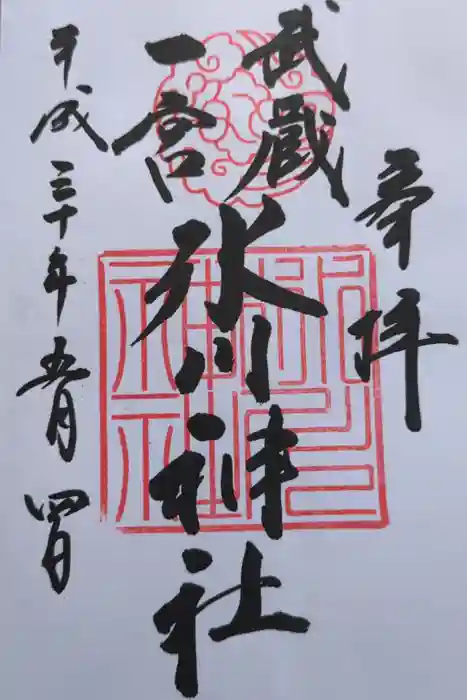 奉拝
武蔵
一宮
氷川神社
平成三十年五月四日